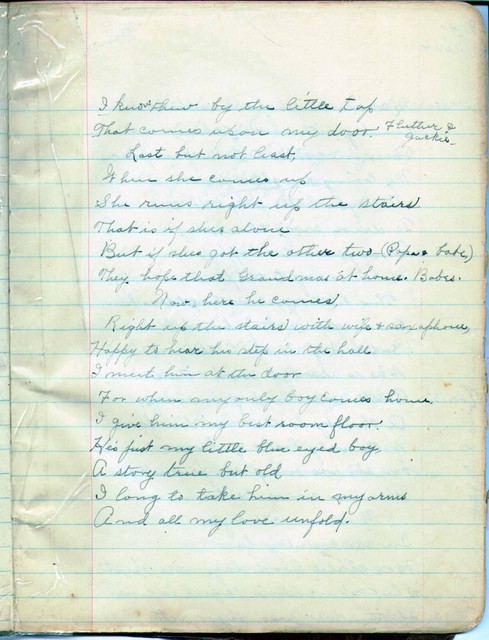 I know them by the little tap
That comes upon my door. Fluther &
Jackie.
Last but not least,
When she comes up
She runs right up the stairs
That is if shes alone
But if shes got the other two (Papa & babe,)
They hope that Grandmas at home. Babes.
Now here he comes,
Right up the stairs with wife & saxaphone,
Happy to hear his step in the hall
I meet him at the door
For when my only boy comes home,
I give him my best room floor.
He's just my little blue eyed boy
A story true but old
I long to take him in my arms
And all my love unfold.